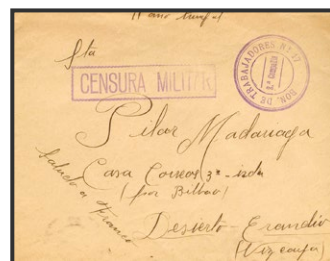 II año triunfal
Sta
CENSURA MILITAR
BON. DE TRABAJADORES Nº 17
1ª Compañía
Pilar Madariaga
Casa Correos 3º-izda
(por Bilbao)
Saludo a Franco
Desierto-Erandio
(Vizcaya)